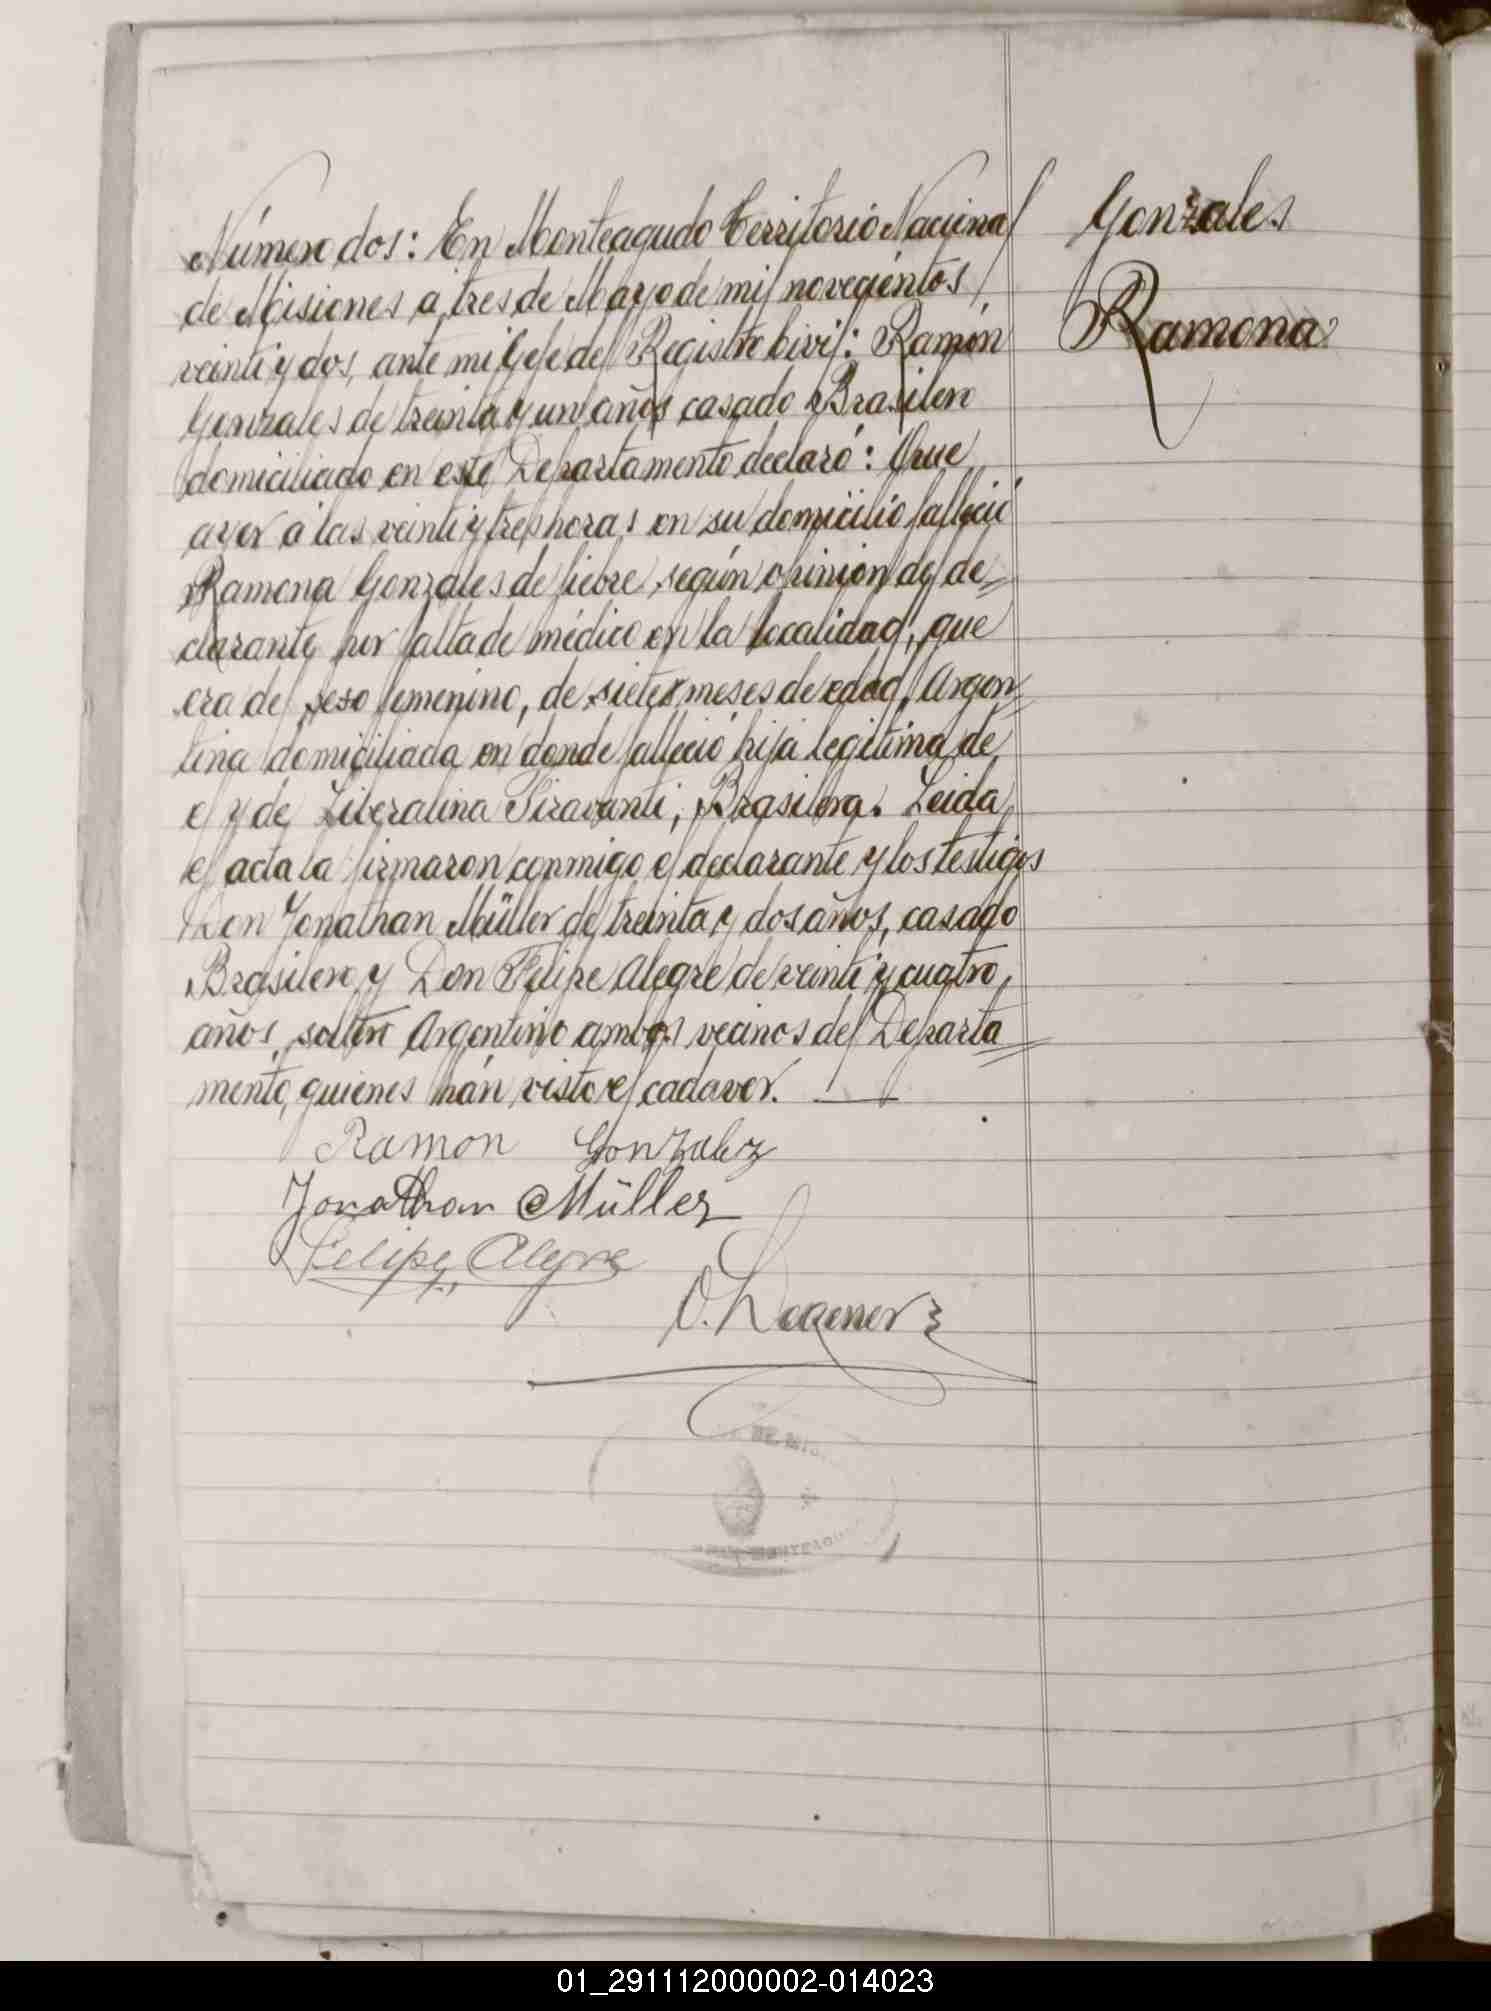 Número dos: En Monteagudo Territorio Nacional
de Misiones a tres de Mayo de mil novecientos
veinti y dos, ante mi Gefe del Registro Civil: Ramón
Gonzales de treinta y un años casado Brasilero
domiciliado en este Departamento declaró: Que
ayer á las veinti y tres horas en su domicilio falleció
Ramona Gonzales de fiebre, según opinion del de=
clarante por falta de médico en la localidad, que
era del sexo femenino, de siete meses de edad, Argen=
tina domiciliada en donde falleció hija legitima de
el y de Liberalina, Brasilera. Leida
el acta la firmaron conmigo el declarante y los testigos
Don Jonathan Müller de treinta y dos años, casado
Brasilero y Don Felipe Alegre de veinti y cuatro
años, soltero Argentino ambos vecinos del Departa=
mento, quienes hán visto el cadaver.
Ramon Gonzalez
Jonathan Müller
Felipe Alegre
O. Wegener
Gonzales
Ramona
01_291112000002-014023